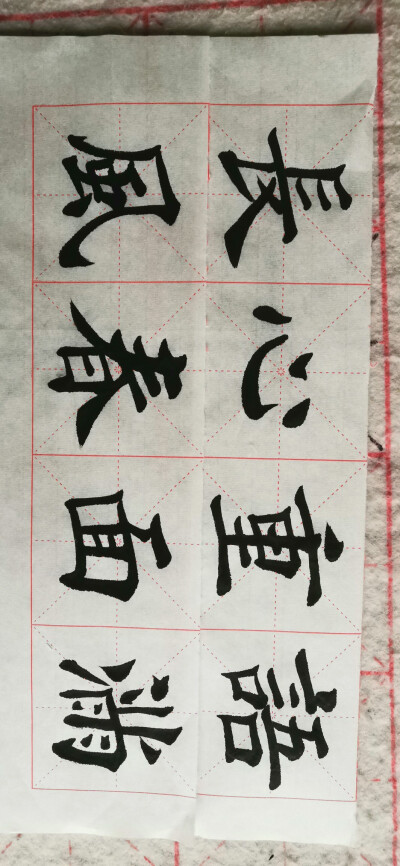 語重心長
滿面春風